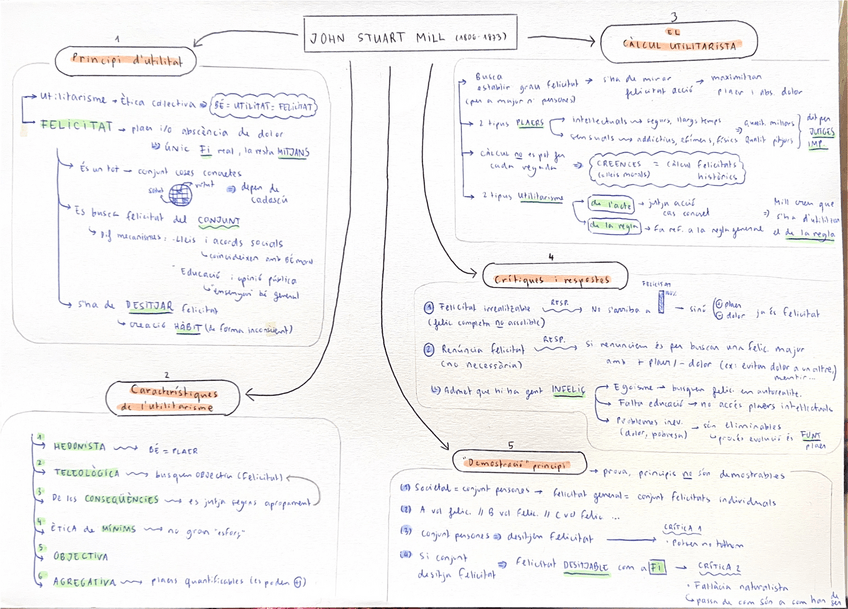 JOHN STUART MILL (1806-1873)
1
Principi d'utilitat
Utilitarisme → Ètica col·lectiva → BÉ = UTILITAT = FELICITAT
FELICITAT → plaer i/o abscència de dolor
únic Fi real, la resta MITJANS
És un tot → conjunt coses concretes
salut
virtut
⇒ depèn de cadascú
Es busca felicitat del CONJUNT
Dif mecanismes: - Lleis i acords socials
coincideixen amb BÉ
Educació i opinió pública
ensenyen bé general
S'ha de DESITJAR felicitat
creació HÀBIT (de forma inconscient)
2
Característiques
de l'utilitarisme
1 HEDONISTA BÉ = PLAER
2 TELEOLÒGICA busquen objectiu (felicitat)
3 De les CONSEQÜÈNCIES es jutja segons apropament
4 ÈTICA de MÍNIMS no gran "esforç"
5 OBJECTIVA
6 AGREGATIVA plaers quantificables (es poden +)
3
EL
CÀLCUL UTILITARISTA
Busca
establir grau felicitat → s'ha de mirar felicitat acció → maximitzar plaer i abs dolor
(per a major nº persones)
2 tipus PLAERS
intel·lectuals segurs, llargs temps ⇒ qualit. millors
sensuals addictius, efímers, físics Qualit pitjors
det per
JUTGES
IMP.
CÀLCUL no es pot fer
cada vegada ⇒ CREENCES = càlcul felicitats
(lleis morals) històrics
2 tipus Utilitarisme
de l'acte → jutja acció
cas concret
de la regla → Fa ref. a la regla general
Mill creu que
s'ha d'utilitzar
el de la regla
4
Crítiques i respostes
1 Felicitat irrealitzable RESP. No s'arriba a
(felic completa no accesible)
FELICITAT
→ sinó + plaer
- dolor ja és felicitat
2 Renúncia felicitat RESP. Si renunciem és per buscar una felic. major
(no necessària) amb + plaer / - dolor (ex: evitem dolor a un altre,
mentir...)
Admet que hi ha gent INFELIÇ
Egoisme → busquen felic. en
Falta educació → no accés plaers intel·lectuals
Problemes inev. → són eliminables
(dolor, pobresa) procés evolució és FONT
plaer
5
"Demostració" principi → prova, principis no són demostrables
1 Societat = conjunt persones → felicitat general = conjunt felicitats individuals
2 A vol felic. // B vol felic. // C vol felic ...
3 Conjunt persones ⇒ desitjen felicitat → CRÍTICA 1
· Potser no tothom
4 Si conjunt
desitja felicitat ⇒ Felicitat DESITJABLE com a FI → CRÍTICA 2
· Fal·làcia naturalista
passa de com són a com han de ser